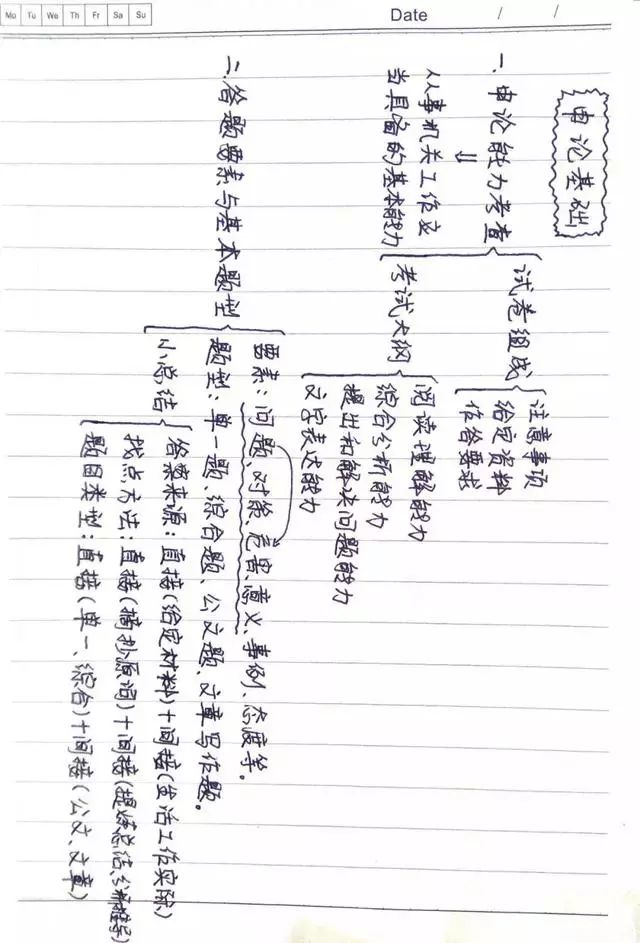 Mo Tu We Th Fr Sa Su
Date / /
申论基础
一、申论能力考查
从事机关工作应
当具备的基本能力
试卷组成
注意事项
给定资料
作答要求
考试大纲
阅读理解能力
综合分析能力
提出和解决问题能力
文字表达能力
二、答题要素与基本题型
要素：问题、对策、危害、意义、事例、态度等。
题型：单一题、综合题、公文题、文章写作题。
小总结
答案来源：直接(给定材料)+间接(生活工作实际)
找点方法：直接(摘抄原词)+间接(提炼总结、分析推导)
题目类型：直接(单一、综合)+间接(公文、文章)